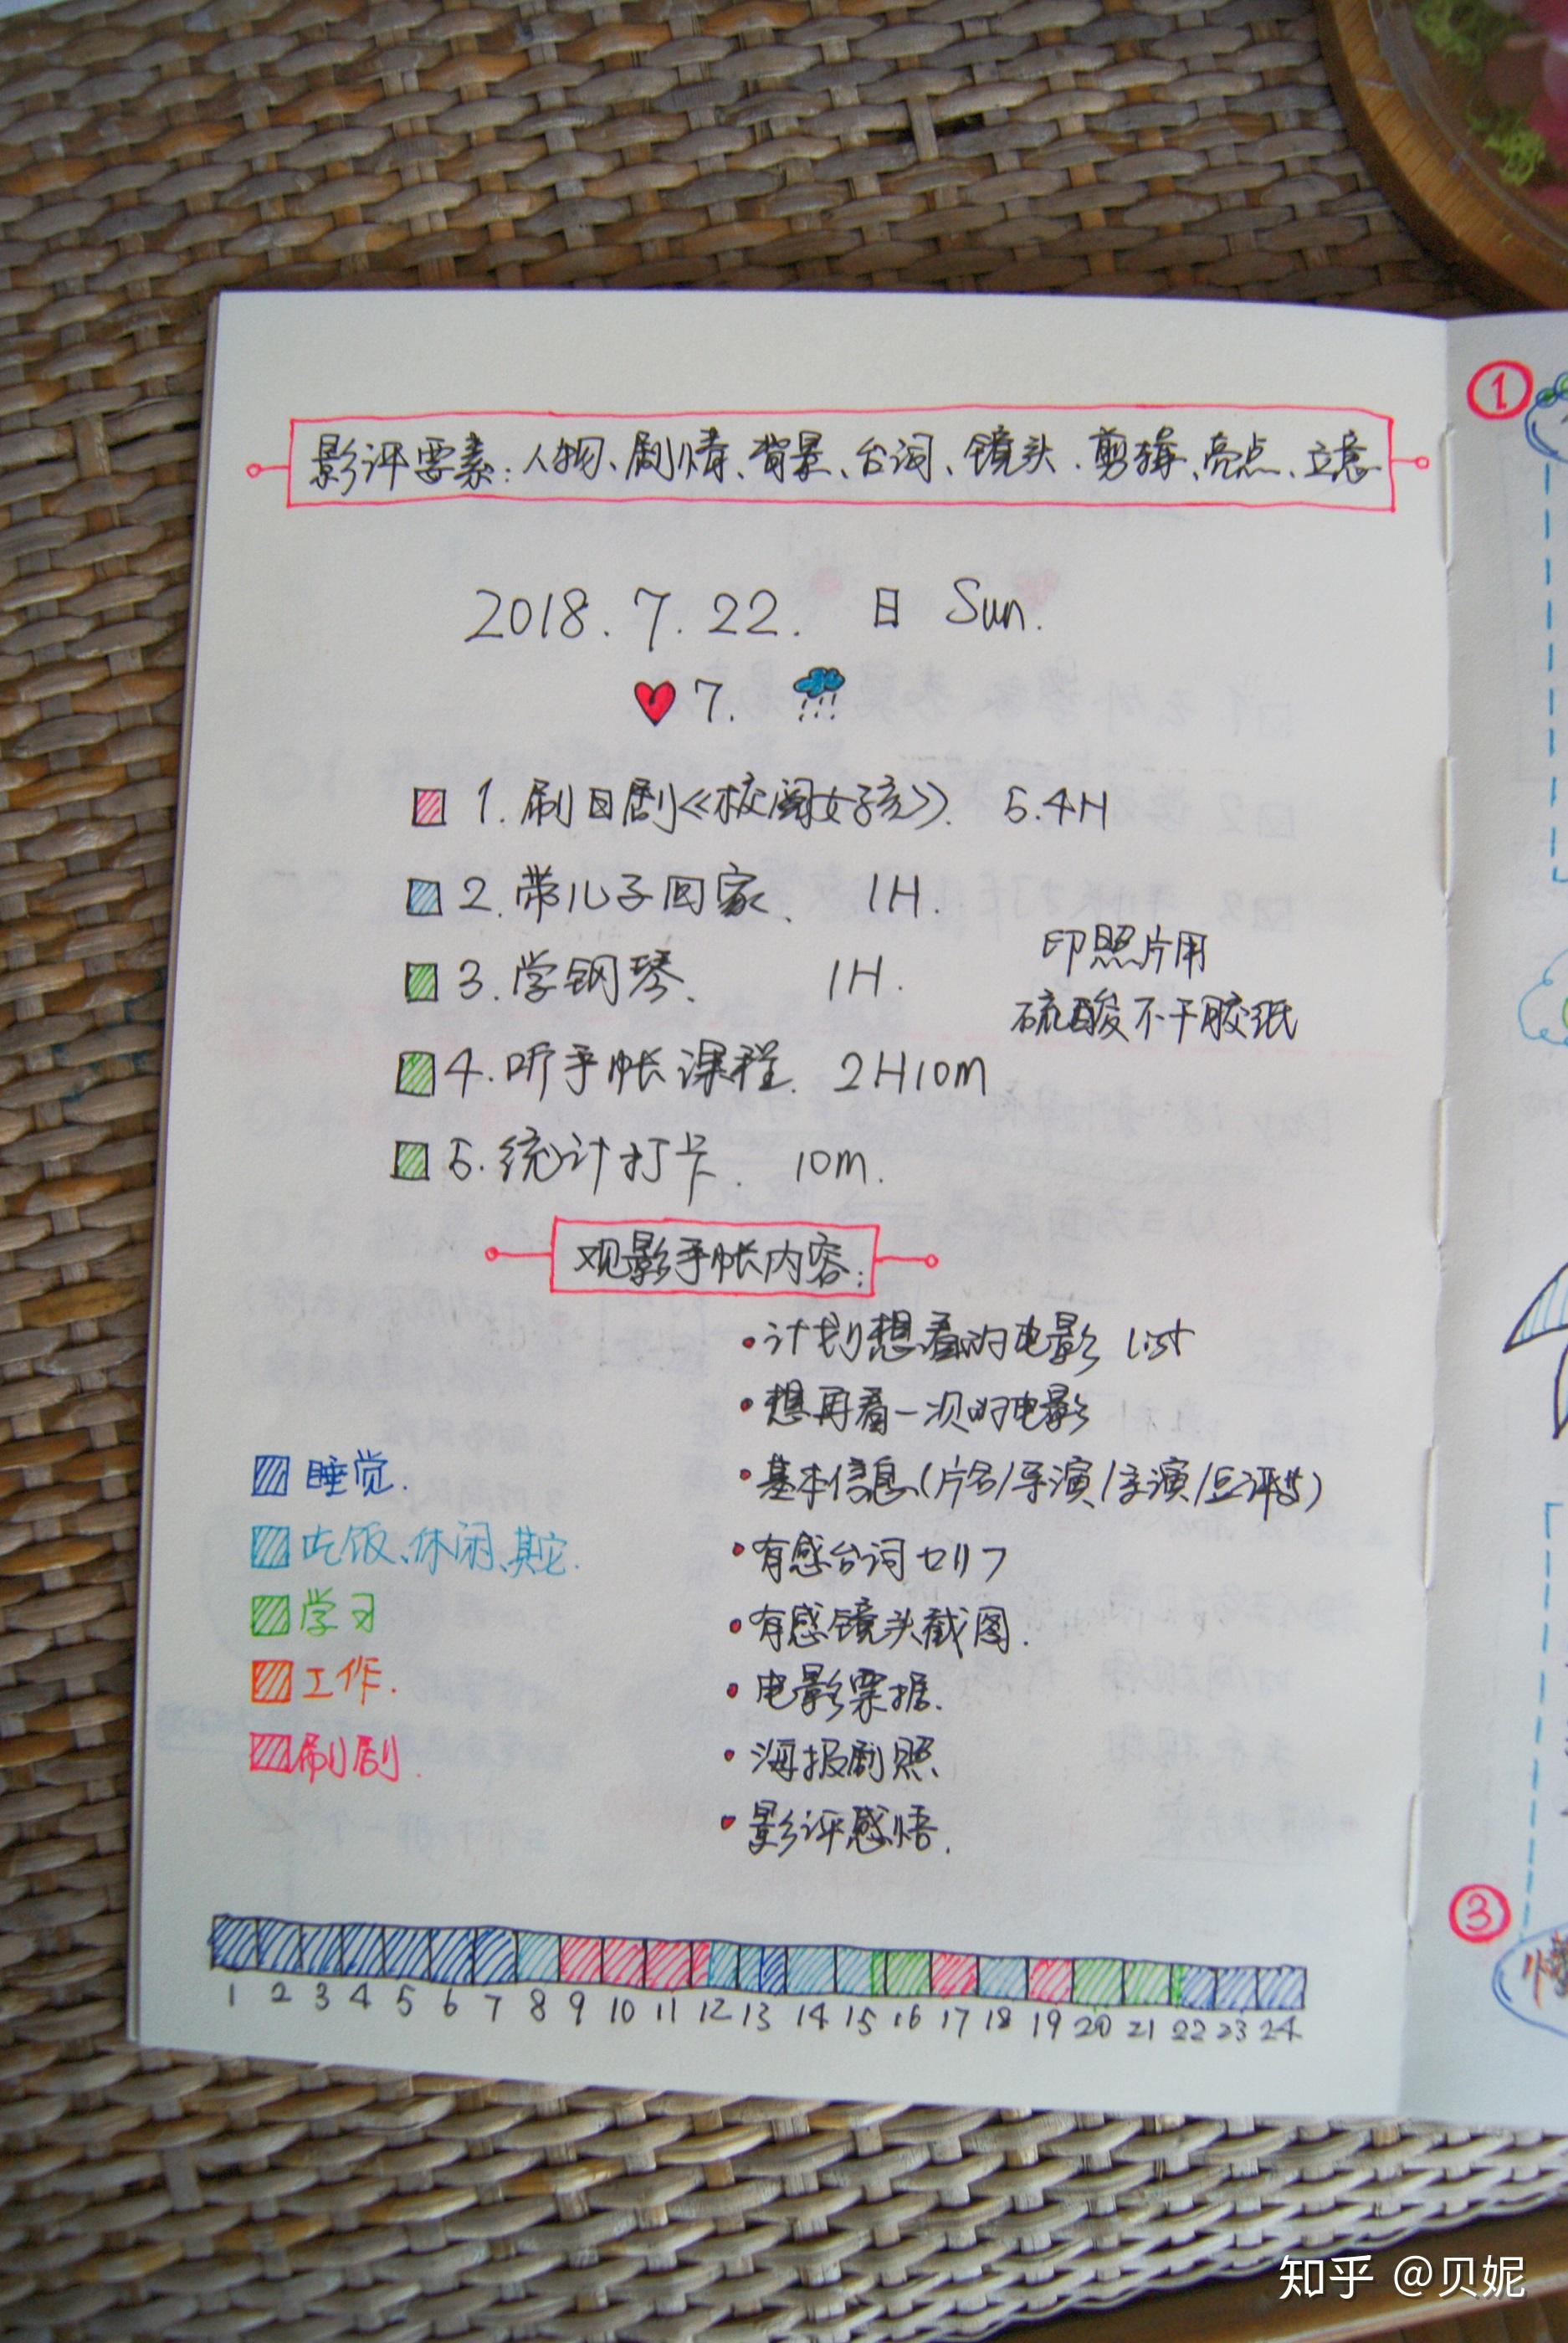 影评要素：人物、剧情、背景、台词、镜头、剪辑、亮点、立意
2018.7.22. 日 Sun.
7.
1. 刷日剧《校阅女孩》. 5.4H
2. 带儿子回家. 1H.
3. 学钢琴. 1H.
印照片用
硫酸不干胶纸
4. 听手帐课程. 2H10m
5. 统计打卡. 10m.
观影手帐内容：
•计划想看的电影 list
•想再看一次的电影
•基本信息(片名/导演/主演/豆评等)
•有感台词セリフ
•有感镜头截图.
•电影票据.
•海报剧照
•影评感悟.
睡觉.
吃饭、休闲、其它.
学习
工作.
刷剧.
1 2 3 4 5 6 7 8 9 10 11 12 13 14 15 16 17 18 19 20 21 22 23 24
1
3
知乎 @贝妮